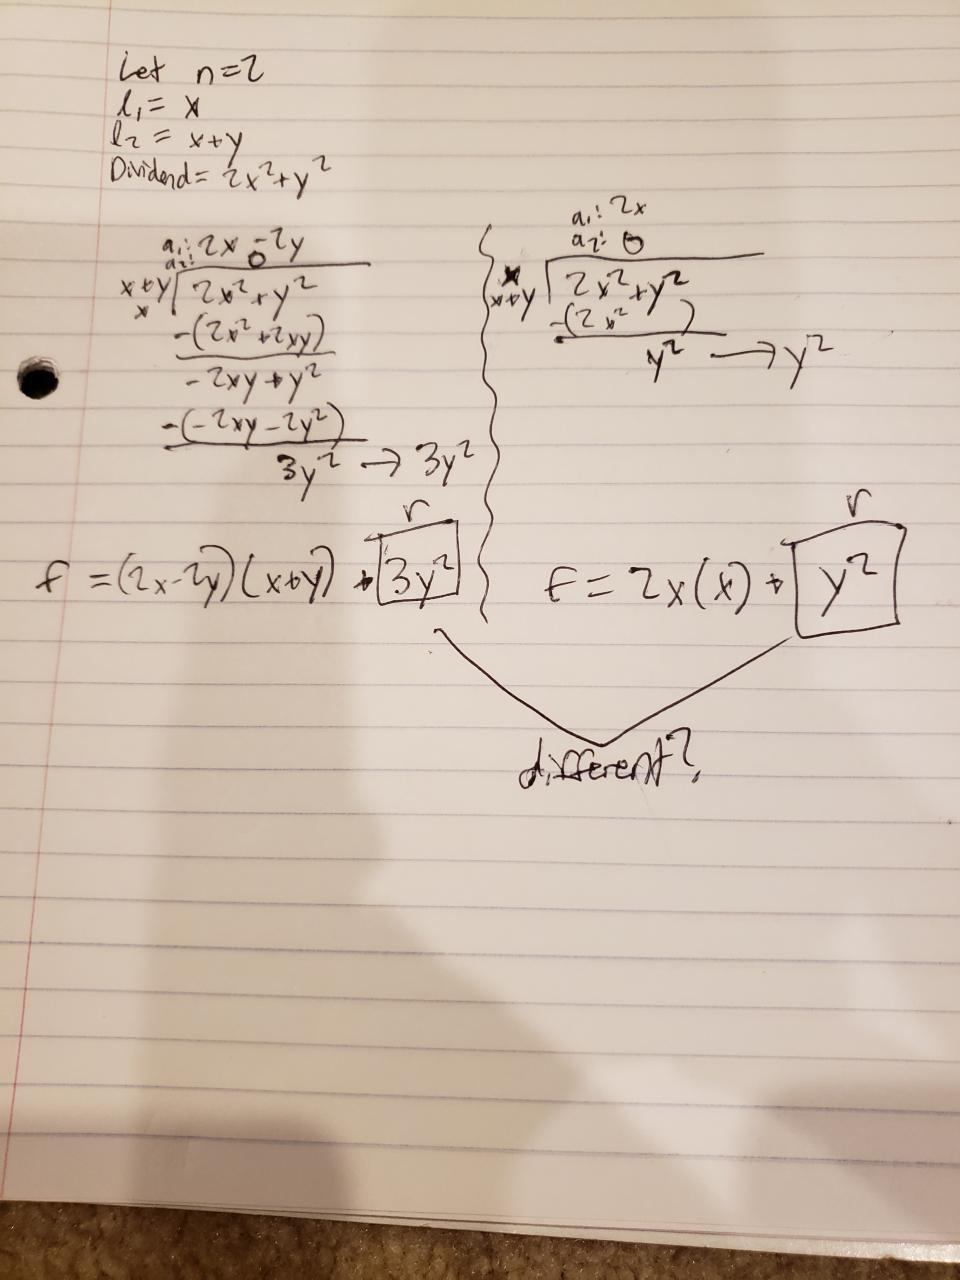 Let n=2
l₁= x
l₂ = x+y
Dividend= 2x²+y²
a₁: 2x -2y
a₂: 0
x+y 2x²+y²
x
-(2x²+2xy)
-2xy+y²
-(-2xy-2y²)
3y² → 3y²
r
f =(2x-2y)(x+y) + 3y²
a₁: 2x
a₂: 0
x 2x²+y²
x+y
-(2x² )
y² → y²
r
f = 2x(x) + y²
different?